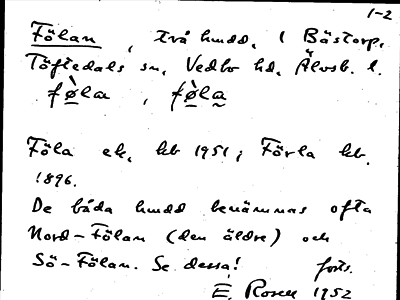 1-2
Fölan, två hmdd, i Bästorp,
Töftedals sn, Vedbo hd, Älvsb. l.
fø̀la, føla̰
Föla ek, kb 1951; Förla kb.
1896.
De båda hmdd benämnas ofta
Nord-Fölan (den äldre) och
Sö-Fölan. Se dessa! forts.
E. Rosell 1952